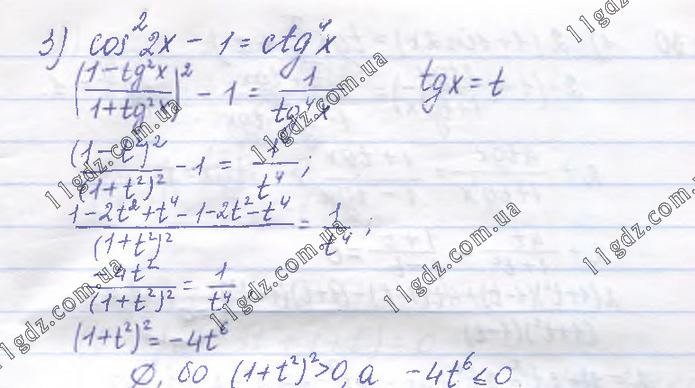 3) cos²2x − 1 = ctg⁴x
((1−tg²x)/(1+tg²x))² − 1 = 1/tg⁴x tgx = t
(1−t²)²/(1+t²)² − 1 = 1/t⁴ ;
(1−2t²+t⁴−1−2t²−t⁴)/(1+t²)² = 1/t⁴ ;
−4t²/(1+t²)² = 1/t⁴
(1+t²)² = −4t⁶
∅, бо (1+t²)²>0, а −4t⁶ ≤ 0
11gdz.com.ua
11gdz.com.ua
11gdz.com.ua
11gdz.com.ua
11gdz.com.ua
11gdz.com.ua